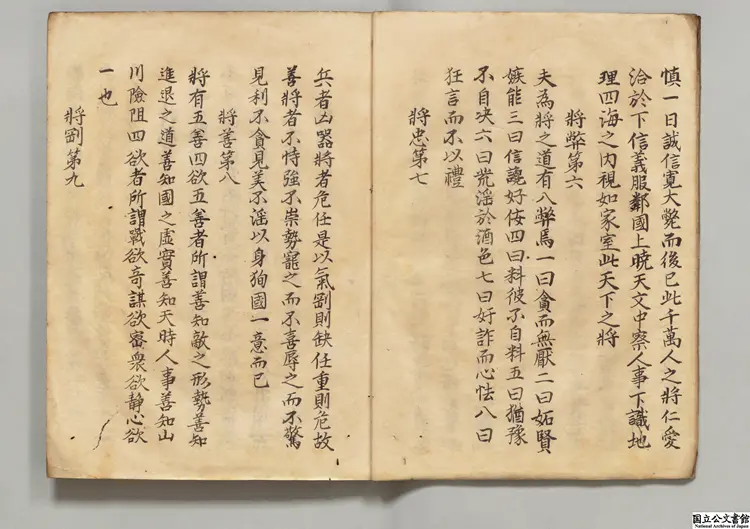 慎一日誠信寛大斃而後已此千萬人之將仁愛
洽於下信義服鄰國上暁天文中察人事下識地
理四海之内視如家室此天下之將
將弊第六
夫為將之道有八弊焉一曰貪而無厭二曰妬賢
嫉能三曰信讒好佞四曰料彼不自料五曰猶豫
不自决六曰荒淫於酒色七曰奸詐而心怯八曰
狂言而不以禮
將忠第七
兵者凶器將者危任是以氣剛則缺任重則危故
善將者不恃強不崇勢寵之而不喜辱之而不驚
見利不貪見美不淫以身殉國一意而已
將善第八
將有五善四欲五善者所謂善知敵之形勢善知
進退之道善知國之虚實善知天時人事善知山
川險阻四欲者所謂戰欲奇謀欲密衆欲静心欲
一也
將剛第九
国立公文書館
National Archives of Japan